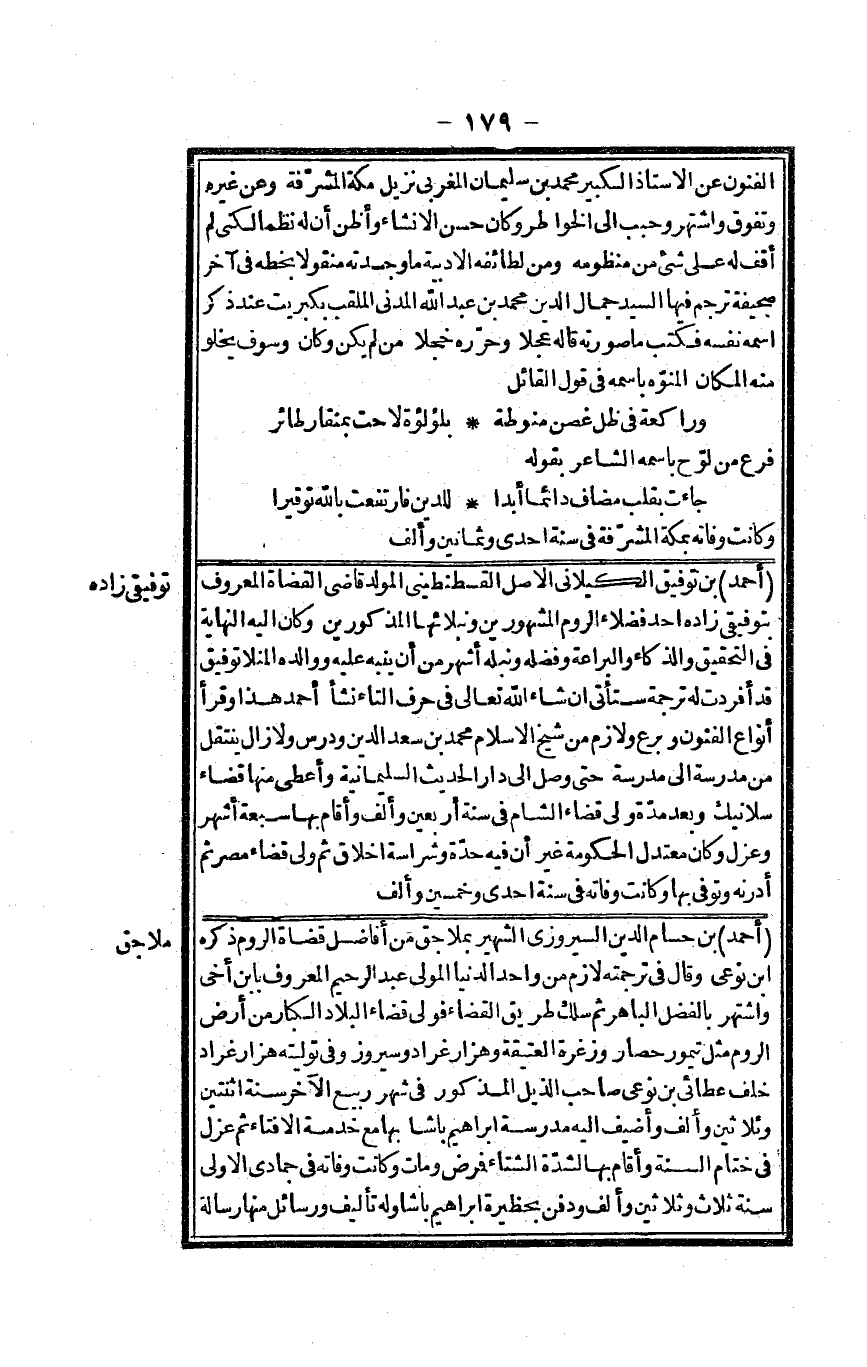 - ١٧٩ -
الفنون عن الاستاذ الكبير محمد بن سليمان المغربى نزيل مكة المشرّفة وعن غيره
وتفوق واشتهر وحبب الى الخواطر وكان حسن الانشاء وأظن أن له نظما لكنى لم
أقف له على شئ من منظومه ومن لطائفه الادبية ما وجدته منقولا بخطه فى آخر
صحيفة ترجم فيها السيد جمال الدين محمد بن عبد الله المدنى الملقب بكبريت عند ذكر
اسمه نفسه فكتب ما صورته قاله عجلا وحرّره خجلا من لم يكن وكان وسوف يخلو
منه المكان المنوّه باسمه فى قول القائل
وراكعة فى ظل غصن منوطة * بلؤلؤة لاحت بمنقار طائر
فرع من لوّح باسمه الشاعر بقوله
جاءت بقلب مضاف دائما أبدا * للدين فارتفعت بالله توقيرا
وكانت وفاته بمكة المشرّفة فى سنة احدى وثمانين وألف
توفيقى زاده
(أحمد) بن توفيق الكيلانى الاصل القسطنطينى المولد قاضى القضاة المعروف
بتوفيقى زاده احد فضلاء الروم المشهورين ونبلائها المذكورين وكان اليه النهاية
فى التحقيق والذكاء والبراعة وفضله ونبله أشهر من أن ينبه عليه ووالده المنلا توفيق
قد أفردت له ترجمة ستأتى ان شاء الله تعالى فى حرف التاء نشأ أحمد هذا وقرأ
أنواع الفنون وبرع ولازم من شيخ الاسلام محمد بن سعد الدين ودرس ولازال ينتقل
من مدرسة الى مدرسة حتى وصل الى دار الحديث السليمانية وأعطى منها قضاء
سلانيك وبعد مدّة ولى قضاء الشام فى سنة أربعين وألف وأقام بها سبعة أشهر
وعزل وكان معتدل الحكومة غير أن فيه حدّة وشراسة اخلاق ثم ولى قضاء مصر ثم
أدرنه وتوفى بها وكانت وفاته فى سنة احدى وخمسين وألف
ملاجق
(أحمد) بن حسام الدين السيروزى الشهير بملاجق من أفاضل قضاة الروم ذكره
ابن نوعى وقال فى ترجمته لازم من واحد الدنيا المولى عبد الرحيم المعروف بابن أخى
واشتهر بالفضل الباهر ثم سلك طريق القضاء فولى قضاء البلاد الكبار من أرض
الروم مثل تيمور حصار وزغرة العتيقة وهزارغراد وسيروز وفى توليته هزارغراد
خلف عطائى بن نوعى صاحب الذيل المذكور فى شهر ربيع الآخر سنة اثنتين
وثلاثين وألف وأضيف اليه مدرسة ابراهيم باشا بها مع خدمة الافتاء ثم عزل
فى ختام السنة وأقام بها لشدّة الشتاء فمرض ومات وكانت وفاته فى جمادى الاولى
سنة ثلاث وثلاثين وألف ودفن بحظيرة ابراهيم باشا وله تأليف ورسائل منها رسالة